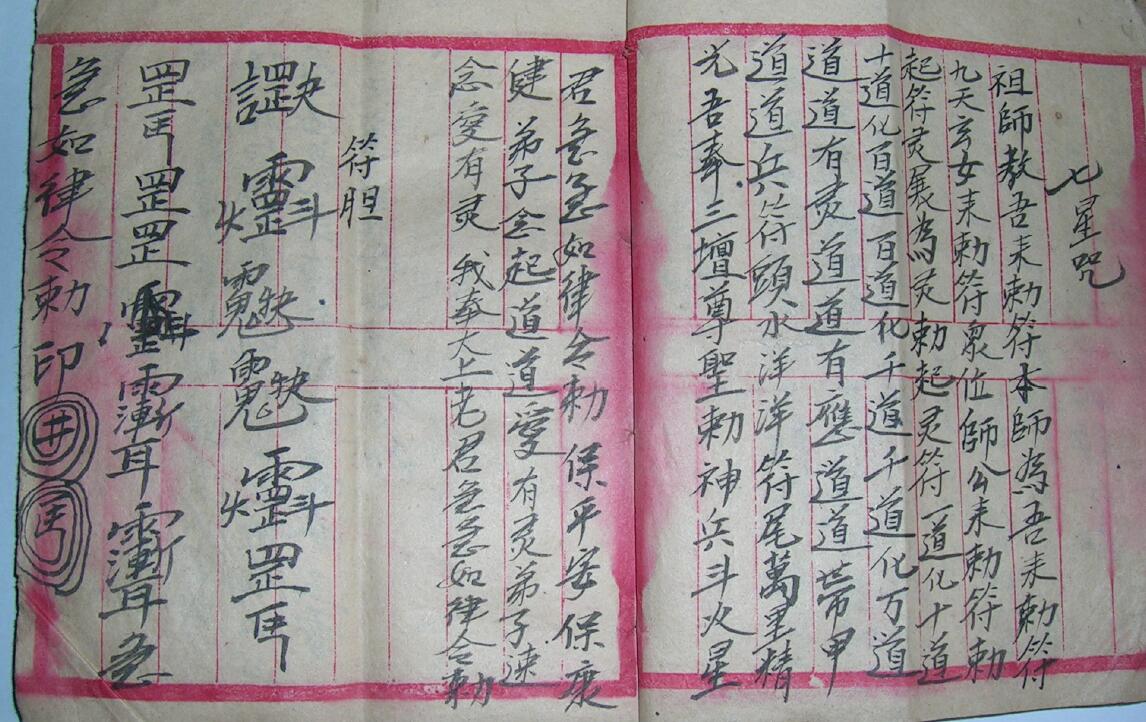 七星咒
祖師教吾来勅符本師為吾来勅符
九天玄女来勅符衆位師公来勅符勅
起符灵展為灵勅起灵符一道化十道
十道化百道百道化千道千道化万道
道道有灵道道有應道道帶甲
道道兵符頭水洋洋符尾萬里精
光吾奉三壇尊聖勅神兵斗火星
君急急如律令勅保平安保康
健弟子念起道道愛有灵弟子速
念愛有灵我奉太上老君急急如律令勅
符胆
罡
罡罡罡耳耳急
急如律令勅印井